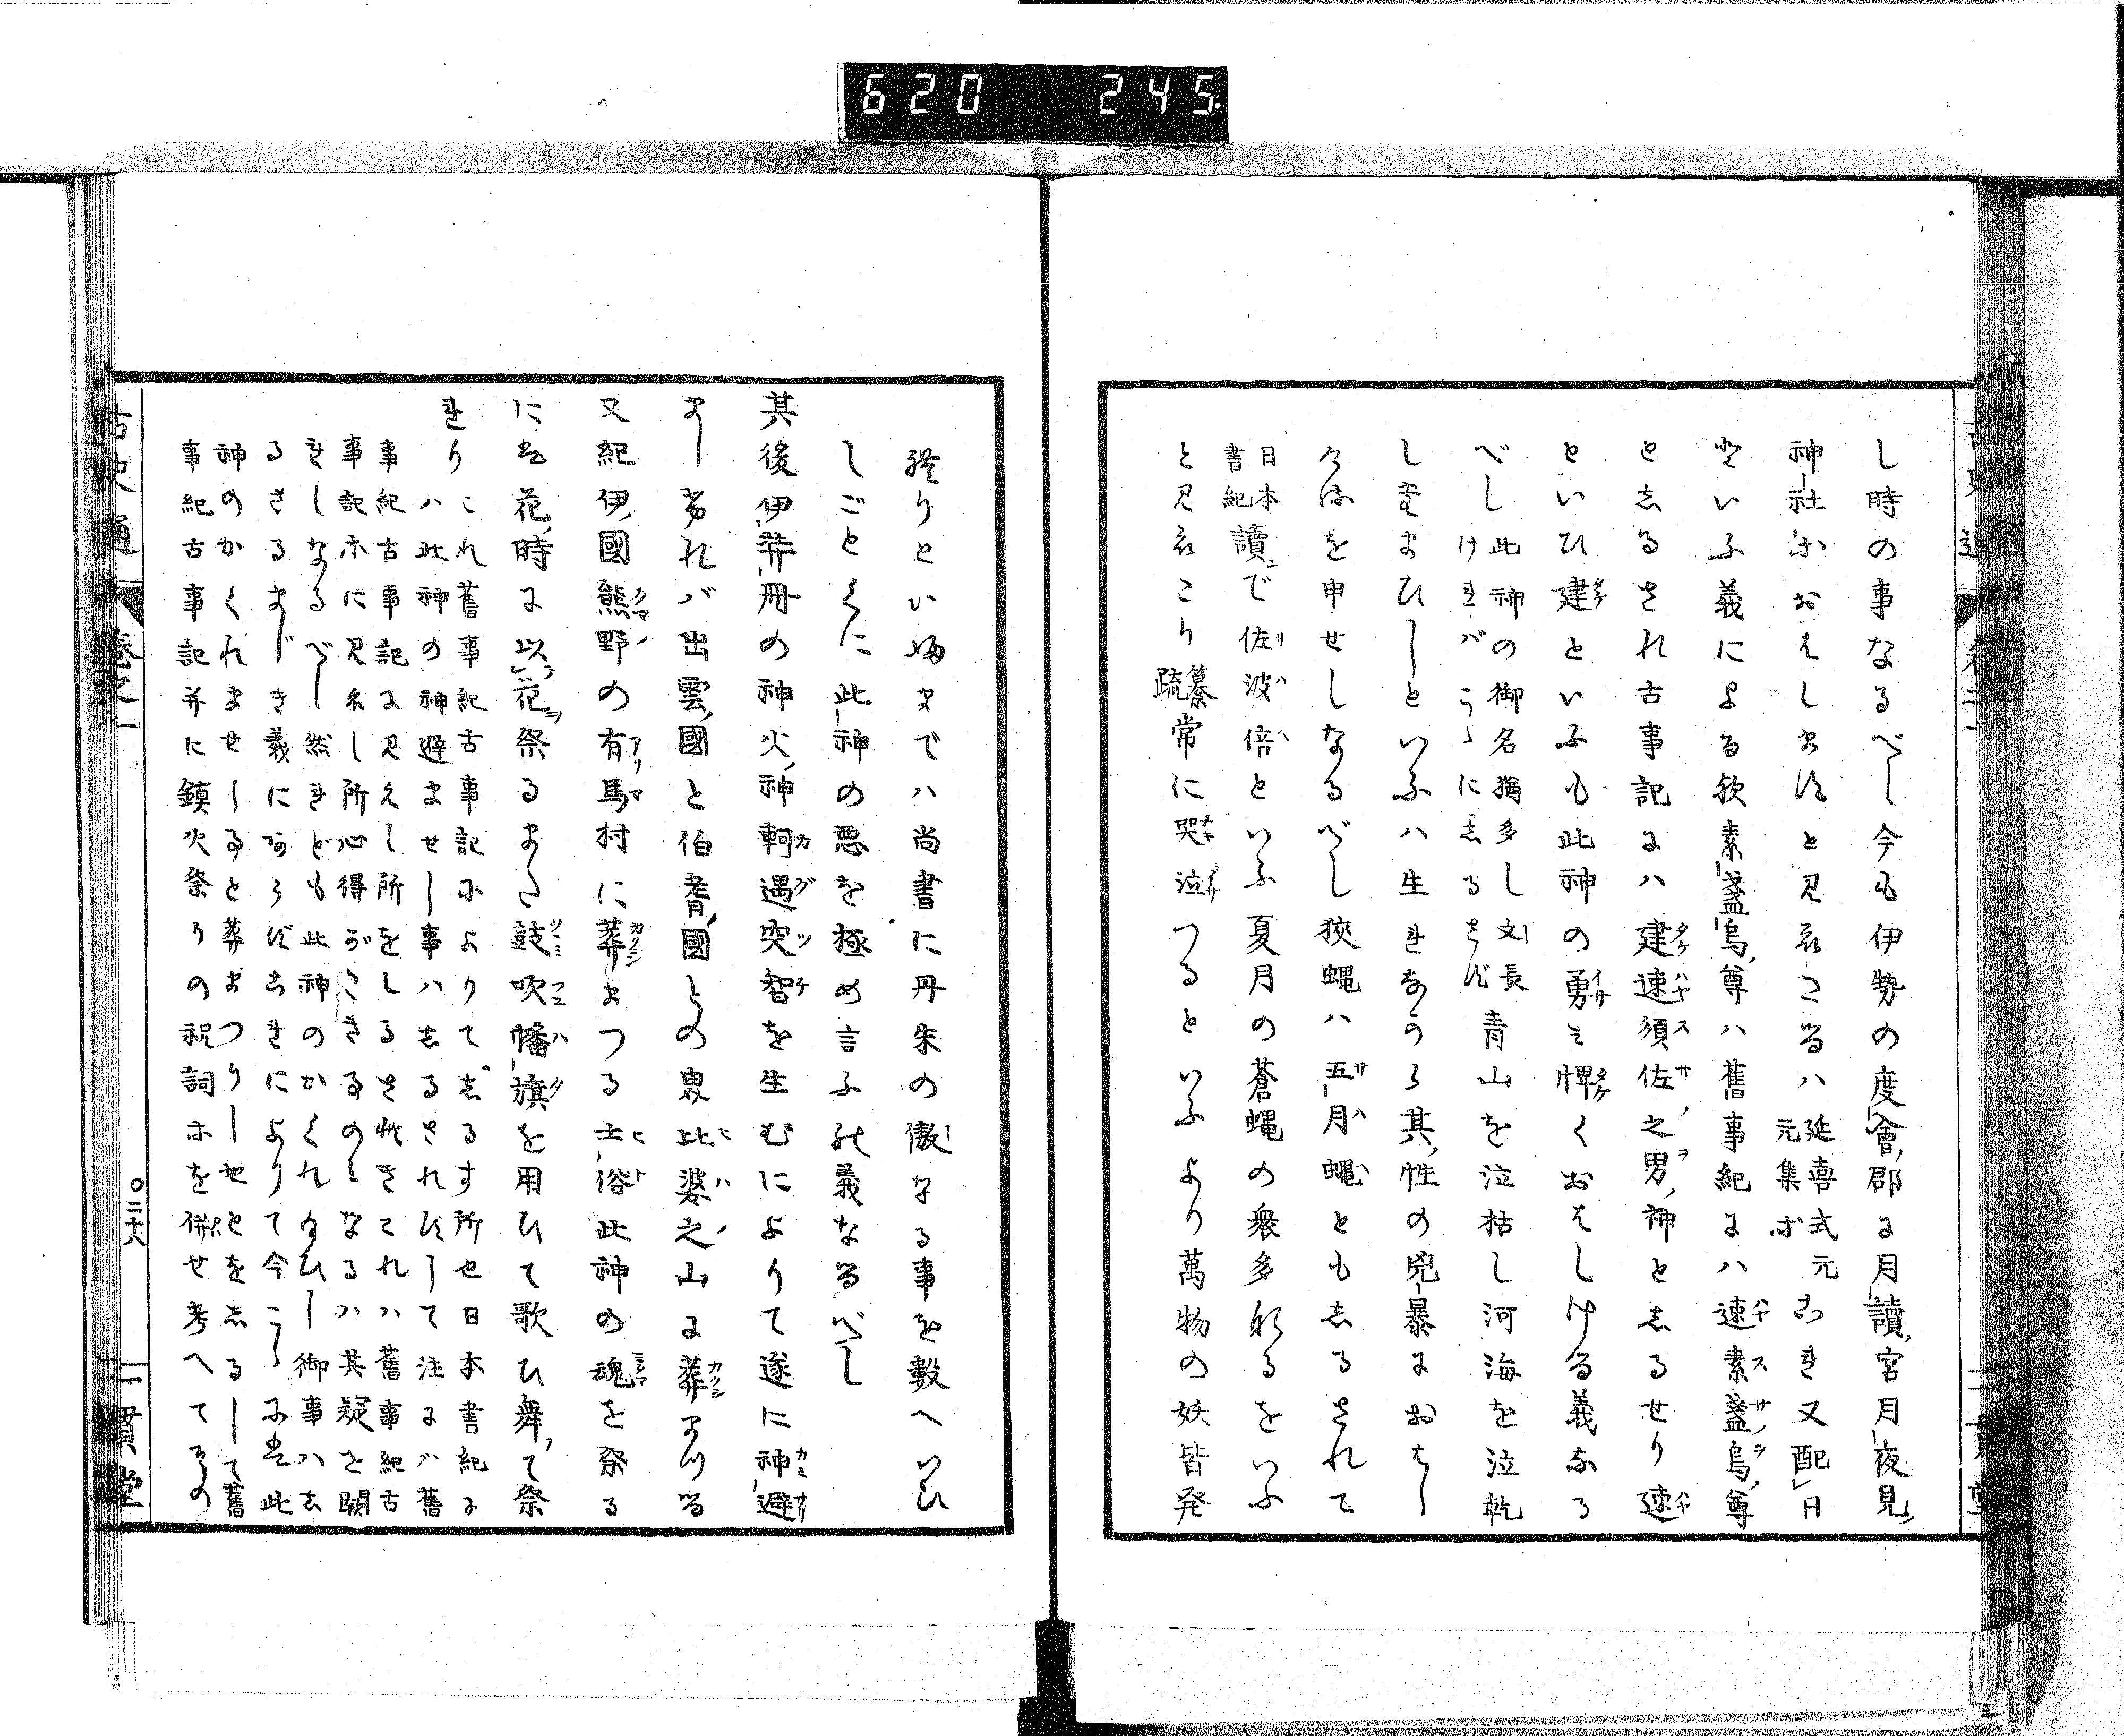 620 245
し時の事なるべし今も伊勢の度會郡に月讀宮月夜見
神社におはしますと見えたるハ延喜式元元集ホ 如き又配日
といふ義による欤素盞烏尊ハ舊事紀にハ速素盞烏尊
としるされ古事記にハ建速須佐之男神としるせり速
といひ建といふも此神の勇ミ悍くおはしける義なる
べし此神の御名猶多し文長けれバこゝにしるさず青山を泣枯し河海を泣乾
しましといふハ生れながら其性の兇暴におはし
けるを申せしなるべし狹蝿ハ五月蠅ともしるされて
日本書紀讀で佐波倍といふ夏月の蒼蠅の衆多なるをいふ
と見えたり纂疏常に哭泣つるといふより萬物の妖皆発
發りといふまでハ尚書に丹朱の傲なる事を數へいひ
しごとくに此神の悪を極め言ふの義なるべし
其後伊弉冊の神火神軻遇突智を生むによりて遂に神避
ましけれバ出雲國と伯耆國との界比婆之山に葬まつる
又紀伊國熊野の有馬村に葬まつる土俗此神の魂を祭る
には花時に以花祭るまた鼓吹幡旗を用ひて歌ひ舞て祭
れり これ舊事紀古事記によりてしるす所也日本書紀に
ハ此神の神避ませし事ハしるされずして注にバ舊
事紀古事記に見えし所をしるされきこれハ舊事紀古
事記ホに見えし所心得がたきものみなるハ其疑を闕
れしなるべし然れども此神のかくれ給ひし御事ハし
るさるまじき義にあらずこれによりて今こゝには此
神のかくれませしると葬まつりし地とをしるして舊
事紀古事記并に鎮火祭りの祝詞ホを併せ考へてその
古史通 卷之一
〇二十八
一貫堂